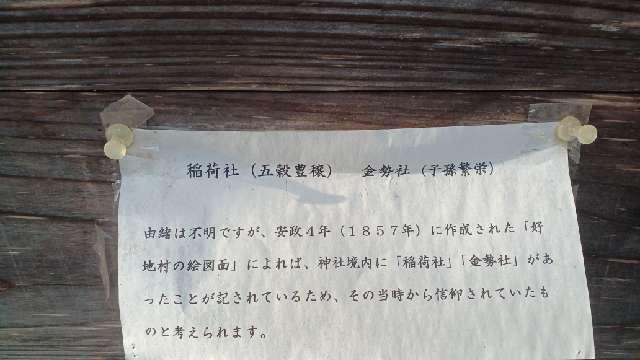 稲荷社（五穀豊穣）　金勢社（子孫繁栄）
由緒は不明ですが、安政４年（１８５７年）に作成された「好
地村の絵図面」によれば、神社境内に「稲荷社」「金勢社」があ
ったことが記されているため、その当時から信仰されていたも
のと考えられます。